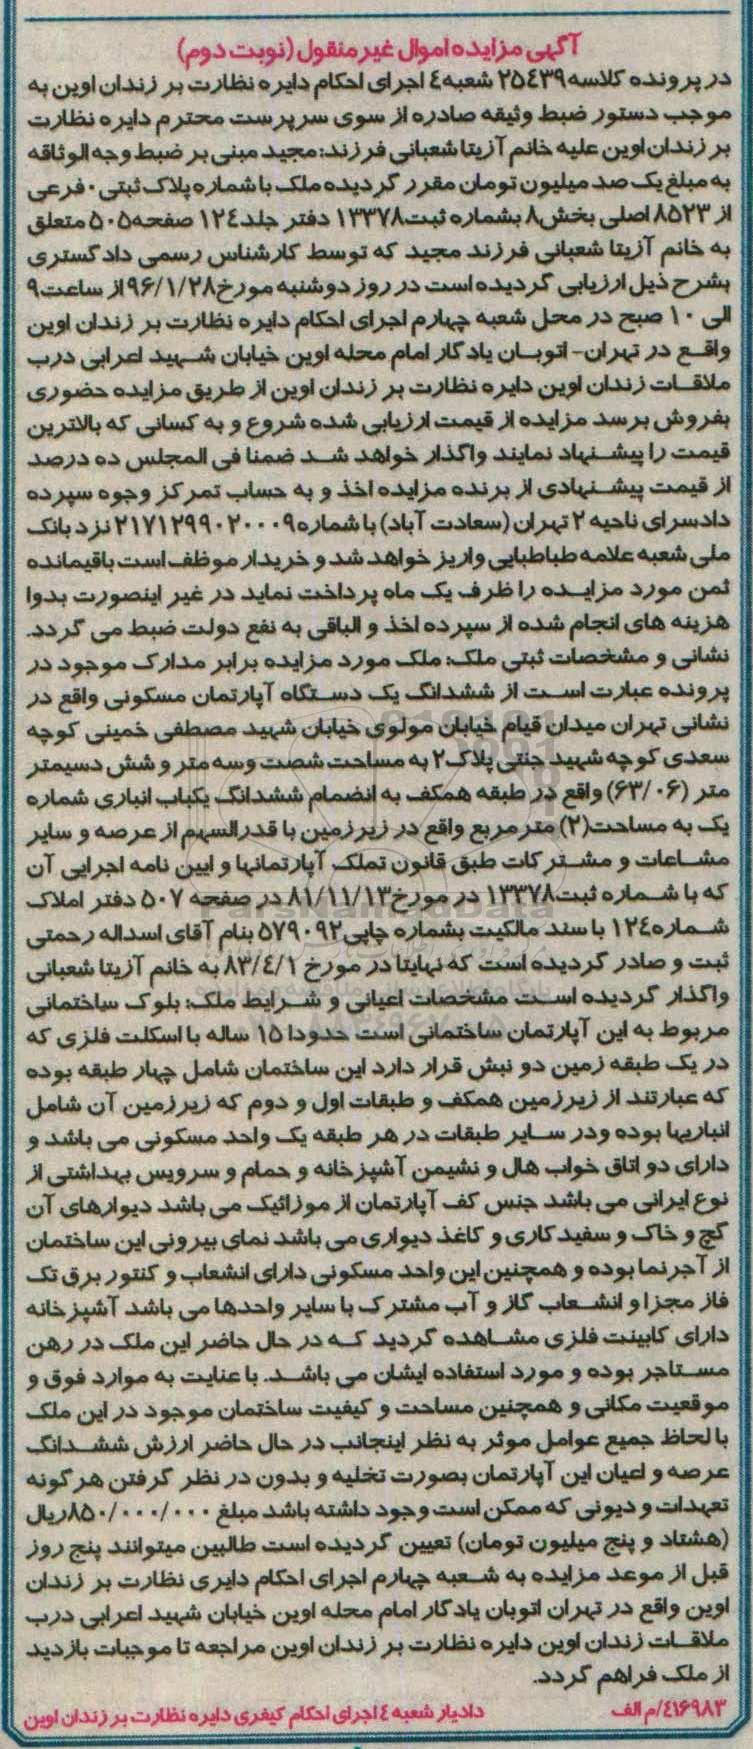 آگهی مزایده اموال غیر منقول (نوبت دوم)
در پرونده کلاسه ۲۵٤۳۹ شعبه ٤ اجرای احکام دایره نظارت بر زندان اوین به
موجب دستور ضبط وثیقه صادره از سوی سرپرست محترم دایره نظارت
بر زندان اوین علیه خانم آزیتا شعبانی فرزند: مجید مبنی بر ضبط وجه الوثاقه
به مبلغ یک صد میلیون تومان مقرر گردیده ملک با شماره پلاک ثبتی ۰ فرعی
از ۸۵۲۳ اصلی بخش ۸ بشماره ثبت ۱۳۳۷۸ دفتر جلد ۱۲٤ صفحه ۵۰۵ متعلق
به خانم آزیتا شعبانی فرزند مجید که توسط کارشناس رسمی دادگستری
بشرح ذیل ارزیابی گردیده است در روز دوشنبه مورخ ۹۶/۱/۲۸ از ساعت ۹
الی ۱۰ صبح در محل شعبه چهارم اجرای احکام دایره نظارت بر زندان اوین
واقع در تهران- اتوبان یادگار امام محله اوین خیابان شهید اعرابی درب
ملاقات زندان اوین دایره نظارت بر زندان اوین از طریق مزایده حضوری
بفروش برسد مزایده از قیمت ارزیابی شده شروع و به کسانی که بالاترین
قیمت را پیشنهاد نمایند واگذار خواهد شد ضمنا فی المجلس ده درصد
از قیمت پیشنهادی از برنده مزایده اخذ و به حساب تمرکز وجوه سپرده
دادسرای ناحیه ۲ تهران (سعادت آباد) با شماره ۲۱۷۱۲۹۹۰۲۰۰۰۹ نزد بانک
ملی شعبه علامه طباطبایی واریز خواهد شد و خریدار موظف است باقیمانده
ثمن مورد مزایده را ظرف یک ماه پرداخت نماید در غیر اینصورت بدوا
هزینه های انجام شده از سپرده اخذ و الباقی به نفع دولت ضبط می گردد.
نشانی و مشخصات ثبتی ملک: ملک مورد مزایده برابر مدارک موجود در
پرونده عبارت است از ششدانگ یک دستگاه آپارتمان مسکونی واقع در
نشانی تهران میدان قیام خیابان مولوی خیابان شهید مصطفی خمینی کوچه
سعدی کوچه شهید جنتی پلاک ۲ به مساحت شصت و سه متر و شش دسیمتر
متر (۶۳/۰۶) واقع در طبقه همکف به انضمام ششدانگ یکباب انباری شماره
یک به مساحت (۲) مترمربع واقع در زیرزمین با قدرالسهم از عرصه و سایر
مشاعات و مشترکات طبق قانون تملک آپارتمانها و ایین نامه اجرایی آن
که با شماره ثبت ۱۳۳۷۸ در مورخ ۸۱/۱۱/۱۳ در صفحه ۵۰۷ دفتر املاک
شماره ۱۲٤ با سند مالکیت بشماره چاپی ۵۷۹۰۹۲ بنام آقای اسداله رحمتی
ثبت و صادر گردیده است که نهایتا در مورخ ۸۳/٤/۱ به خانم آزیتا شعبانی
واگذار گردیده است مشخصات اعیانی و شرایط ملک: بلوک ساختمانی
مربوط به این آپارتمان ساختمانی است حدودا ۱۵ ساله با اسکلت فلزی که
در یک طبقه زمین دو نبش قرار دارد این ساختمان شامل چهار طبقه بوده
که عبارتند از زیرزمین همکف و طبقات اول و دوم که زیرزمین آن شامل
انباریها بوده ودر سایر طبقات در هر طبقه یک واحد مسکونی می باشد و
دارای دو اتاق خواب هال و نشیمن آشپزخانه و حمام و سرویس بهداشتی از
نوع ایرانی می باشد جنس کف آپارتمان از موزائیک می باشد دیوارهای آن
گچ و خاک و سفید کاری و کاغذ دیواری می باشد نمای بیرونی این ساختمان
از آجرنما بوده و همچنین این واحد مسکونی دارای انشعاب و کنتور برق تک
فاز مجزا و انشعاب گاز و آب مشترک با سایر واحدها می باشد آشپزخانه
دارای کابینت فلزی مشاهده گردید که در حال حاضر این ملک در رهن
مستاجر بوده و مورد استفاده ایشان می باشد. با عنایت به موارد فوق و
موقعیت مکانی و همچنین مساحت و کیفیت ساختمان موجود در این ملک
با لحاظ جمیع عوامل موثر به نظر اینجانب در حال حاضر ارزش ششدانگ
عرصه و اعیان این آپارتمان بصورت تخلیه و بدون در نظر گرفتن هرگونه
تعهدات و دیونی که ممکن است وجود داشته باشد مبلغ ۸۵۰/۰۰۰/۰۰۰ ریال
(هشتاد و پنج میلیون تومان) تعیین گردیده است طالبین میتوانند پنج روز
قبل از موعد مزایده به شعبه چهارم اجرای احکام دایری نظارت بر زندان
اوین واقع در تهران اتوبان یادگار امام محله اوین خیابان شهید اعرابی درب
ملاقات زندان اوین دایره نظارت بر زندان اوین مراجعه تا موجبات بازدید
از ملک فراهم گردد.
٤۱۶۹۸۳/م الف دادیار شعبه ٤ اجرای احکام کیفری دایره نظارت بر زندان اوین